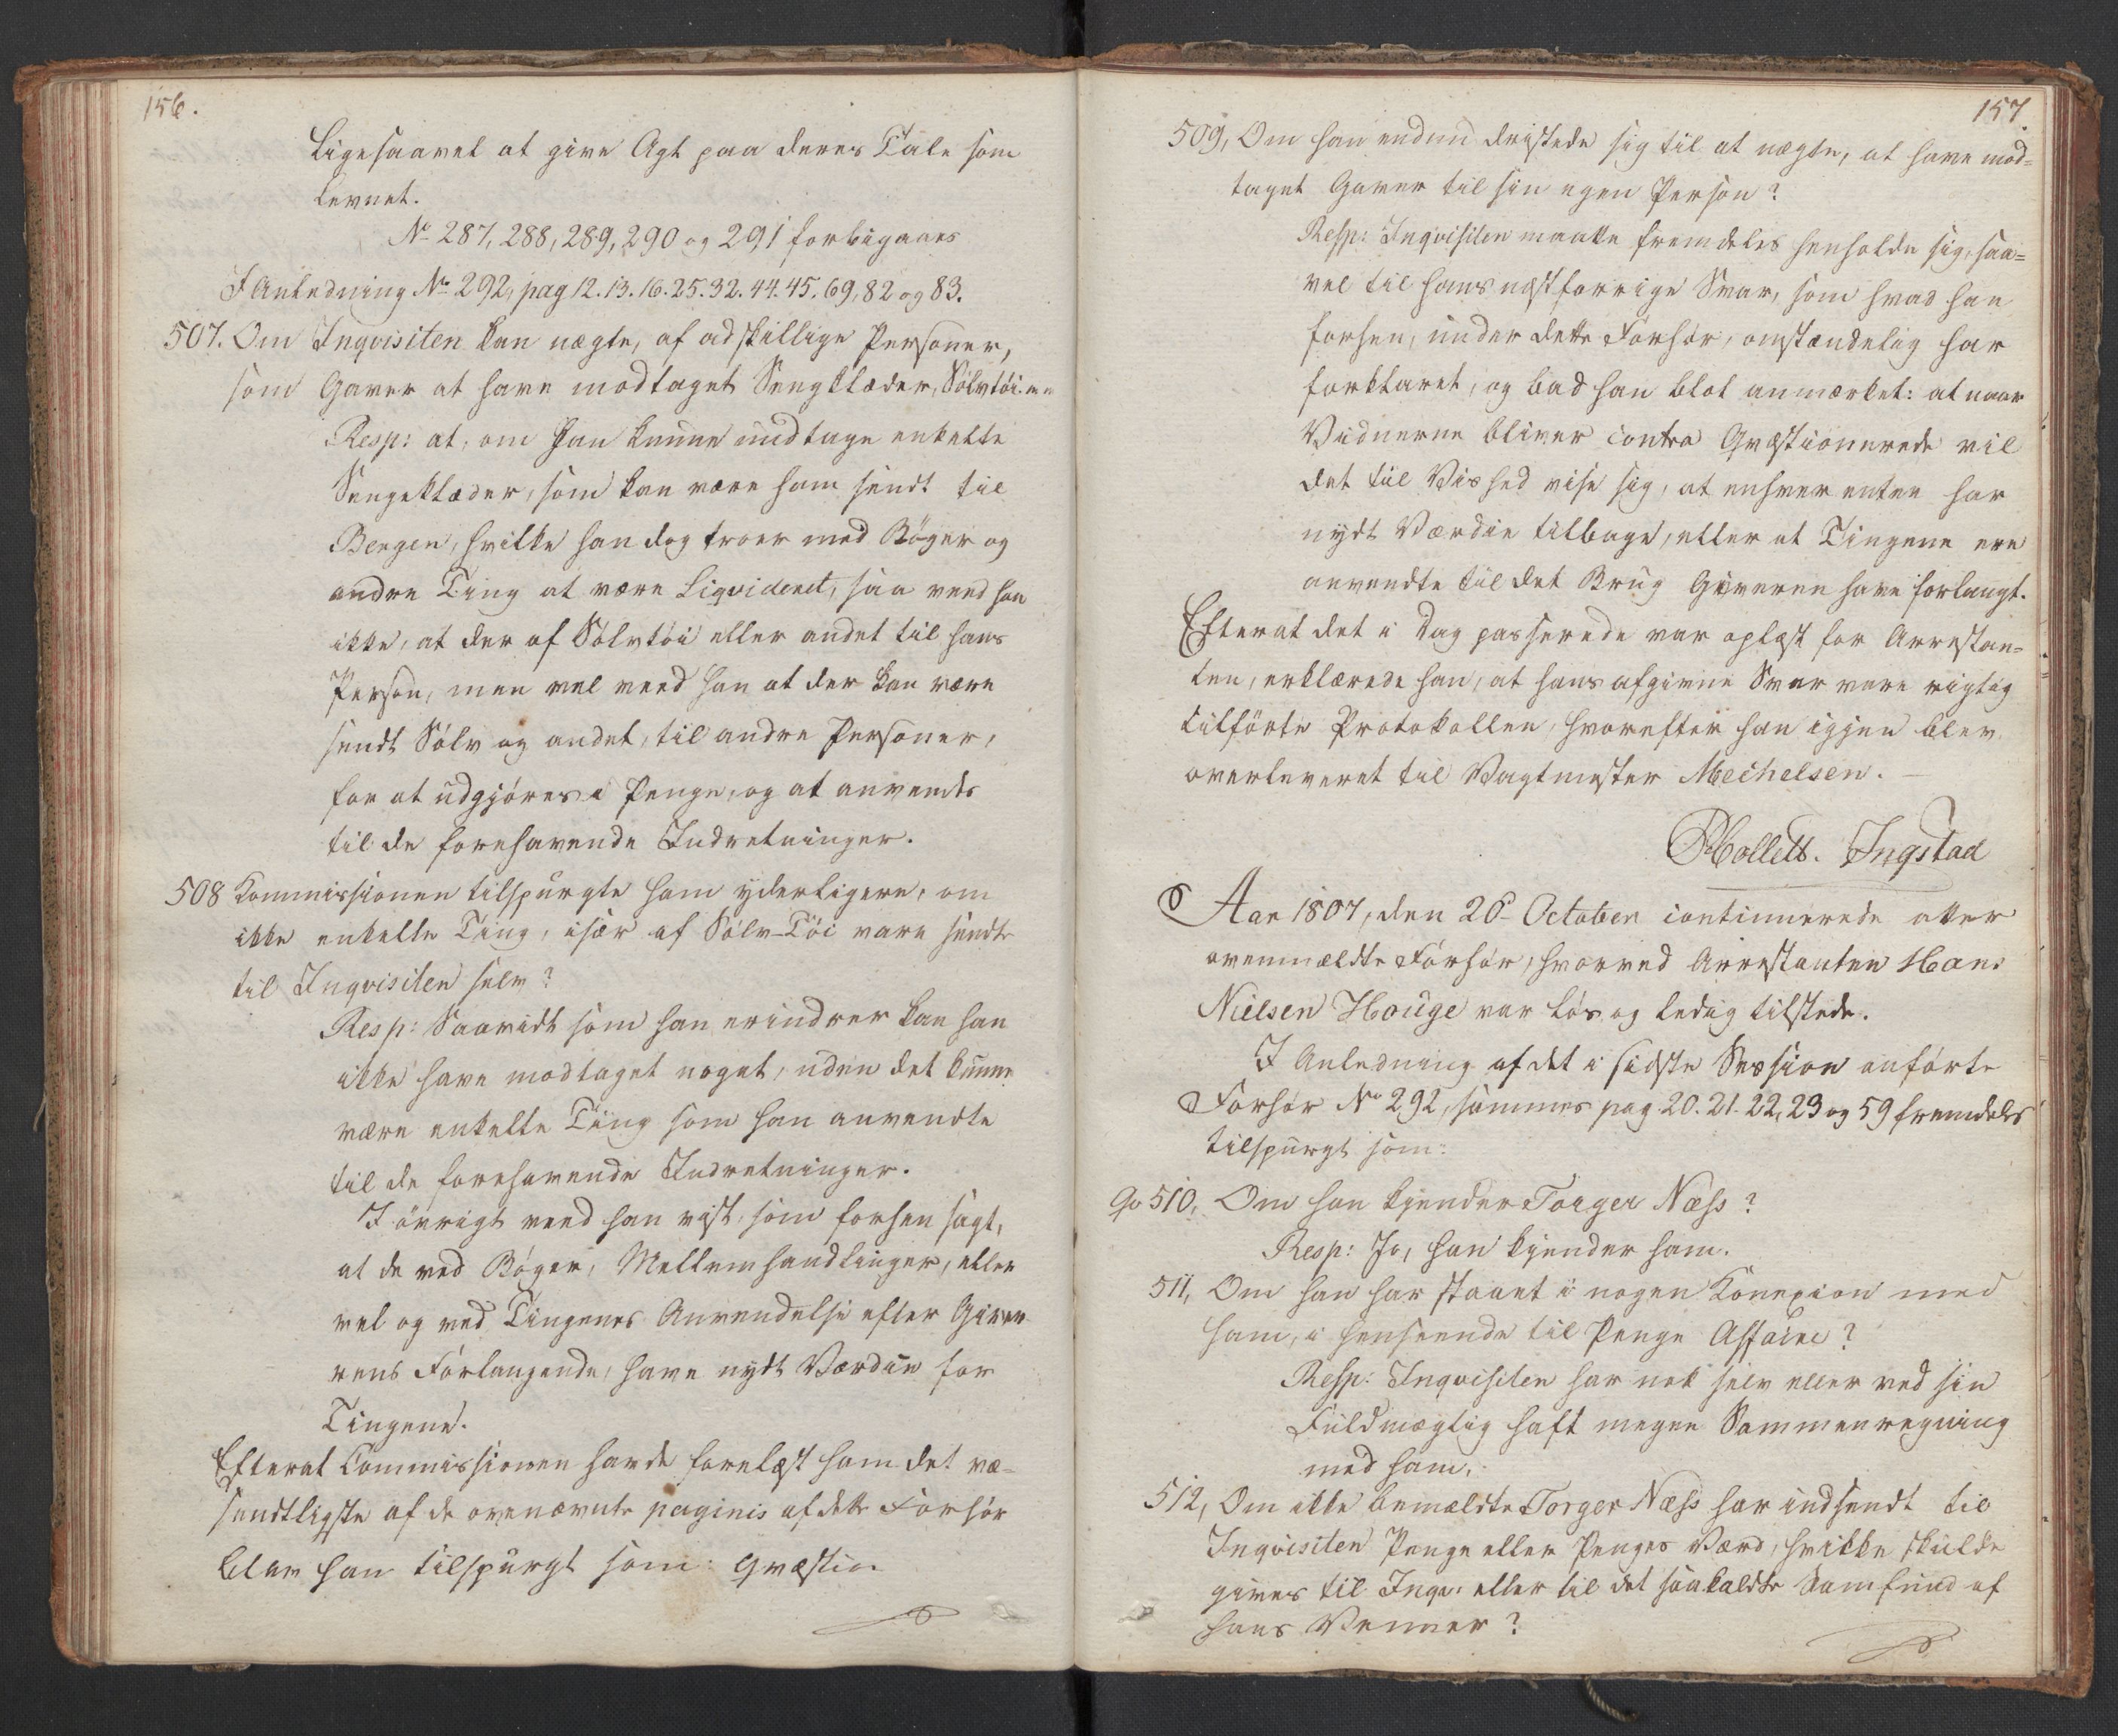 156.
Ligesaavel at give Agt paa deres Tale som
Levnet.
No 287, 288, 289, 290 og 291 forbigaaes
I Anledning No 292, pag 12. 13. 16. 25. 32. 44. 45. 69, 82 og 83.
507. Om Inqvisiten kan nægte, af adskillige Personer,
som Gaver at have modtaget Sengklæder, Sølvtöi
Resp: at, om han kunne undtage enkelte
Sengeklæder, som kan være ham sendt til
Bergen, hvilke han dog troer med Bøger og
andre Ting at være Liqvideret, saa veed han
ikke, at der af Sölvtöi eller andet til hans
Person, men vel veed han at der kan være
sendt Sölv og andet, til andre Personer,
for at udgjöres i Penge, og at anvendes
til de forehavende Indretninger.
508 Kommissionen tilspurgte ham yderligere, om
ikke enkelte Ting, især af Sölv-Töi vare sendte
til Inqvisiten selv?
Resp: Saavidt som han erindrer kan han
ikke have modtaget noget, uden det kunne
være enkelte Ting som han anvendte
til de forehavende Indretninger.
I övrigt veed han vist, som forhen sagt,
at de ved Bøger, Mellemhandlinger, eller
vel og ved Tingenes Anvendelse efter Give-
rens Forlangende, have nydt Værdie for
Tingene.
Efterat Commissionen havde forelæst ham det væ-
sendtligste af de ovenævnte paginis af dette Forhör
blev han tilspurgt som: Qvæstion
157.
509, Om han endnu dristede sig til at nægte, at have mod-
taget Gaver til sin egen Person?
Resp: Inqvisiten maatte fremdeles henholde sig, saa-
vel til hans næstforrige Svar, som hvad han
forhen, under dette Forhör, omstændelig har
forklaret, og bad han blot anmærket: at naar
Vidnerne bliver contra Qvæstionerede vil
det til Vished vise sig, at enhver enten har
nydt Værdie tilbage, eller at Tingene ere
anvendte til det Brug Giveren have forlangt.
Efterat det i Dag passerede var oplæst for Arrestan-
ten, erklærede han, at hans afgivne Svar vare rigtig
tilförte Protokollen, hvorefter han igjen blev
overleveret til Vagtmester Mechelsen.
Collett. Ingstad
Aar 1807, den 26 October continuerede atter
ovenmældte Forhör, hvorved Arrestanten Hans
Nielsen Houge var løs og ledig tilstede.
I Anledning af det i sidste Session anförte
Forhör No 292, sammes pag. 20. 21. 22, 23 og 59 fremdeles
tilspurgt som:
Qv 510, Om han kjender Torger Næss?
Resp: Jo, han kjender ham.
511, Om han har staaet i nogen Konexion med
ham, i henseende til Penge Affaire?
Resp: Inqvisiten har nok selv eller ved sin
Fuldmægtig haft megen Sammenregning
med ham.
512, Om ikke bemældte Torger Næss har indsendt til
Inqvisiten Penge eller Penges Værd, hvilke skulde
gives til Inqv: eller til det saakaldte Samfund af
hans Venner?